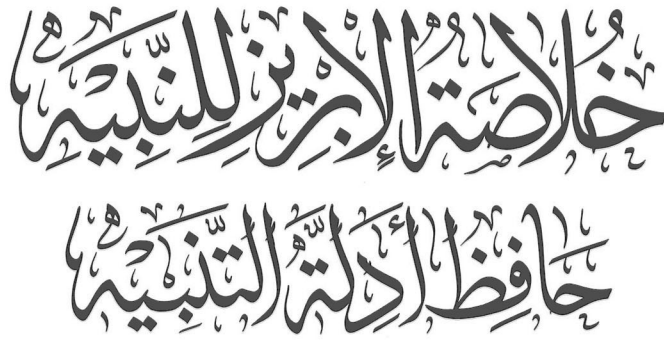 خُلَاصَةُ الإِبْرِيزِ لِلنَّبِيهِ
حَافِظِ أَدِلَّةِ التَّنْبِيهِ